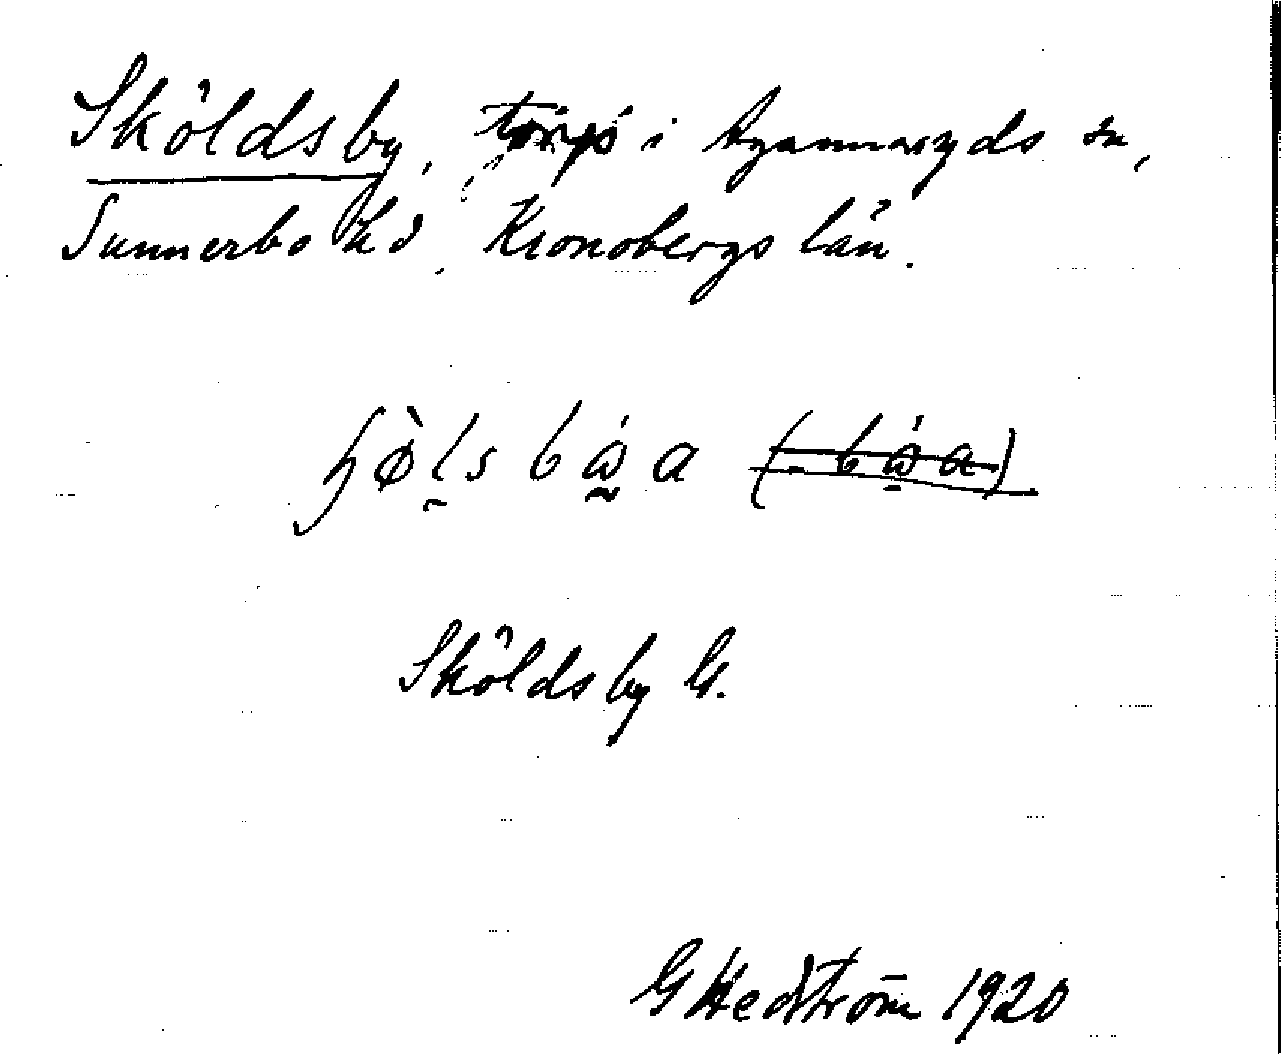 Sköldsby, torp i Agunnaryds sn,
Sunnerbo hd, Kronobergs län.
Sköldsby G.
G Hedström 1920